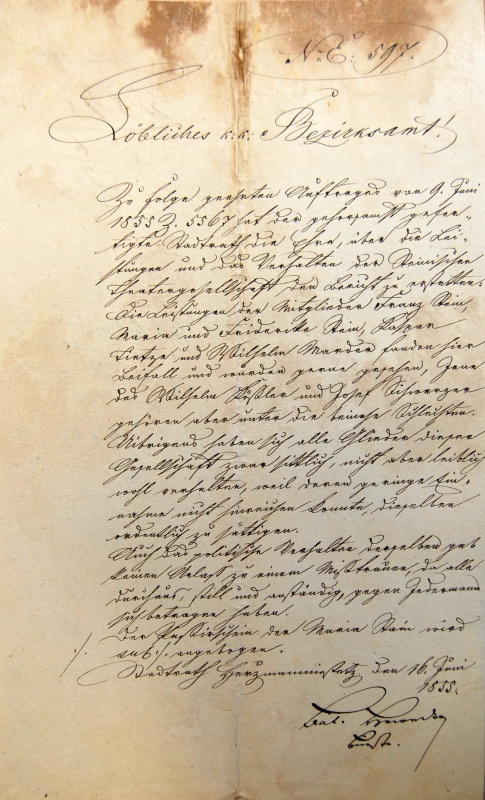 N. E. 597.
Löbliches k. k. Bezirksamt!
Zu Folge geehrten Auftrages von 9. Juni
1855 Z. 5567 hat der gehorsamst gefer-
tigte Stadtrath die Ehre, über die Lei-
stungen und das Verhalten der Steinischen
Theatergesellschaft den Bericht zu erstatten:
Die Leistungen der Mitglieder Franz Stein,
Maria und Friderike Stein, Kaspar
Tietze und Wilhelm Marder fanden hier
Beifall und wurden gerne gesehen, Jene
des Wilhelm Köstler und Josef Schwarzer
gehören aber unter die beinahe Schlechten.
Uibrigens haben sich alle Glieder dieser
Gesellschaft zwar sittlich, nicht aber leiblich
wohl verhalten, weil deren geringe Ein-
nahme nicht hinreichen konnte, dieselben
ordentlich zu sättigen.
Auch das politische Verhalten derselben gab
keinen Anlass zu einem Mißtrauen, da alle
durchaus, still und anständig, gegen Jedermann
sich betragen haben.
Der Passirschein der Maria Stein wird
sub ./. angebogen.
./.
Stadtrath Herzmanmiestetz den 16. Juni
1855.